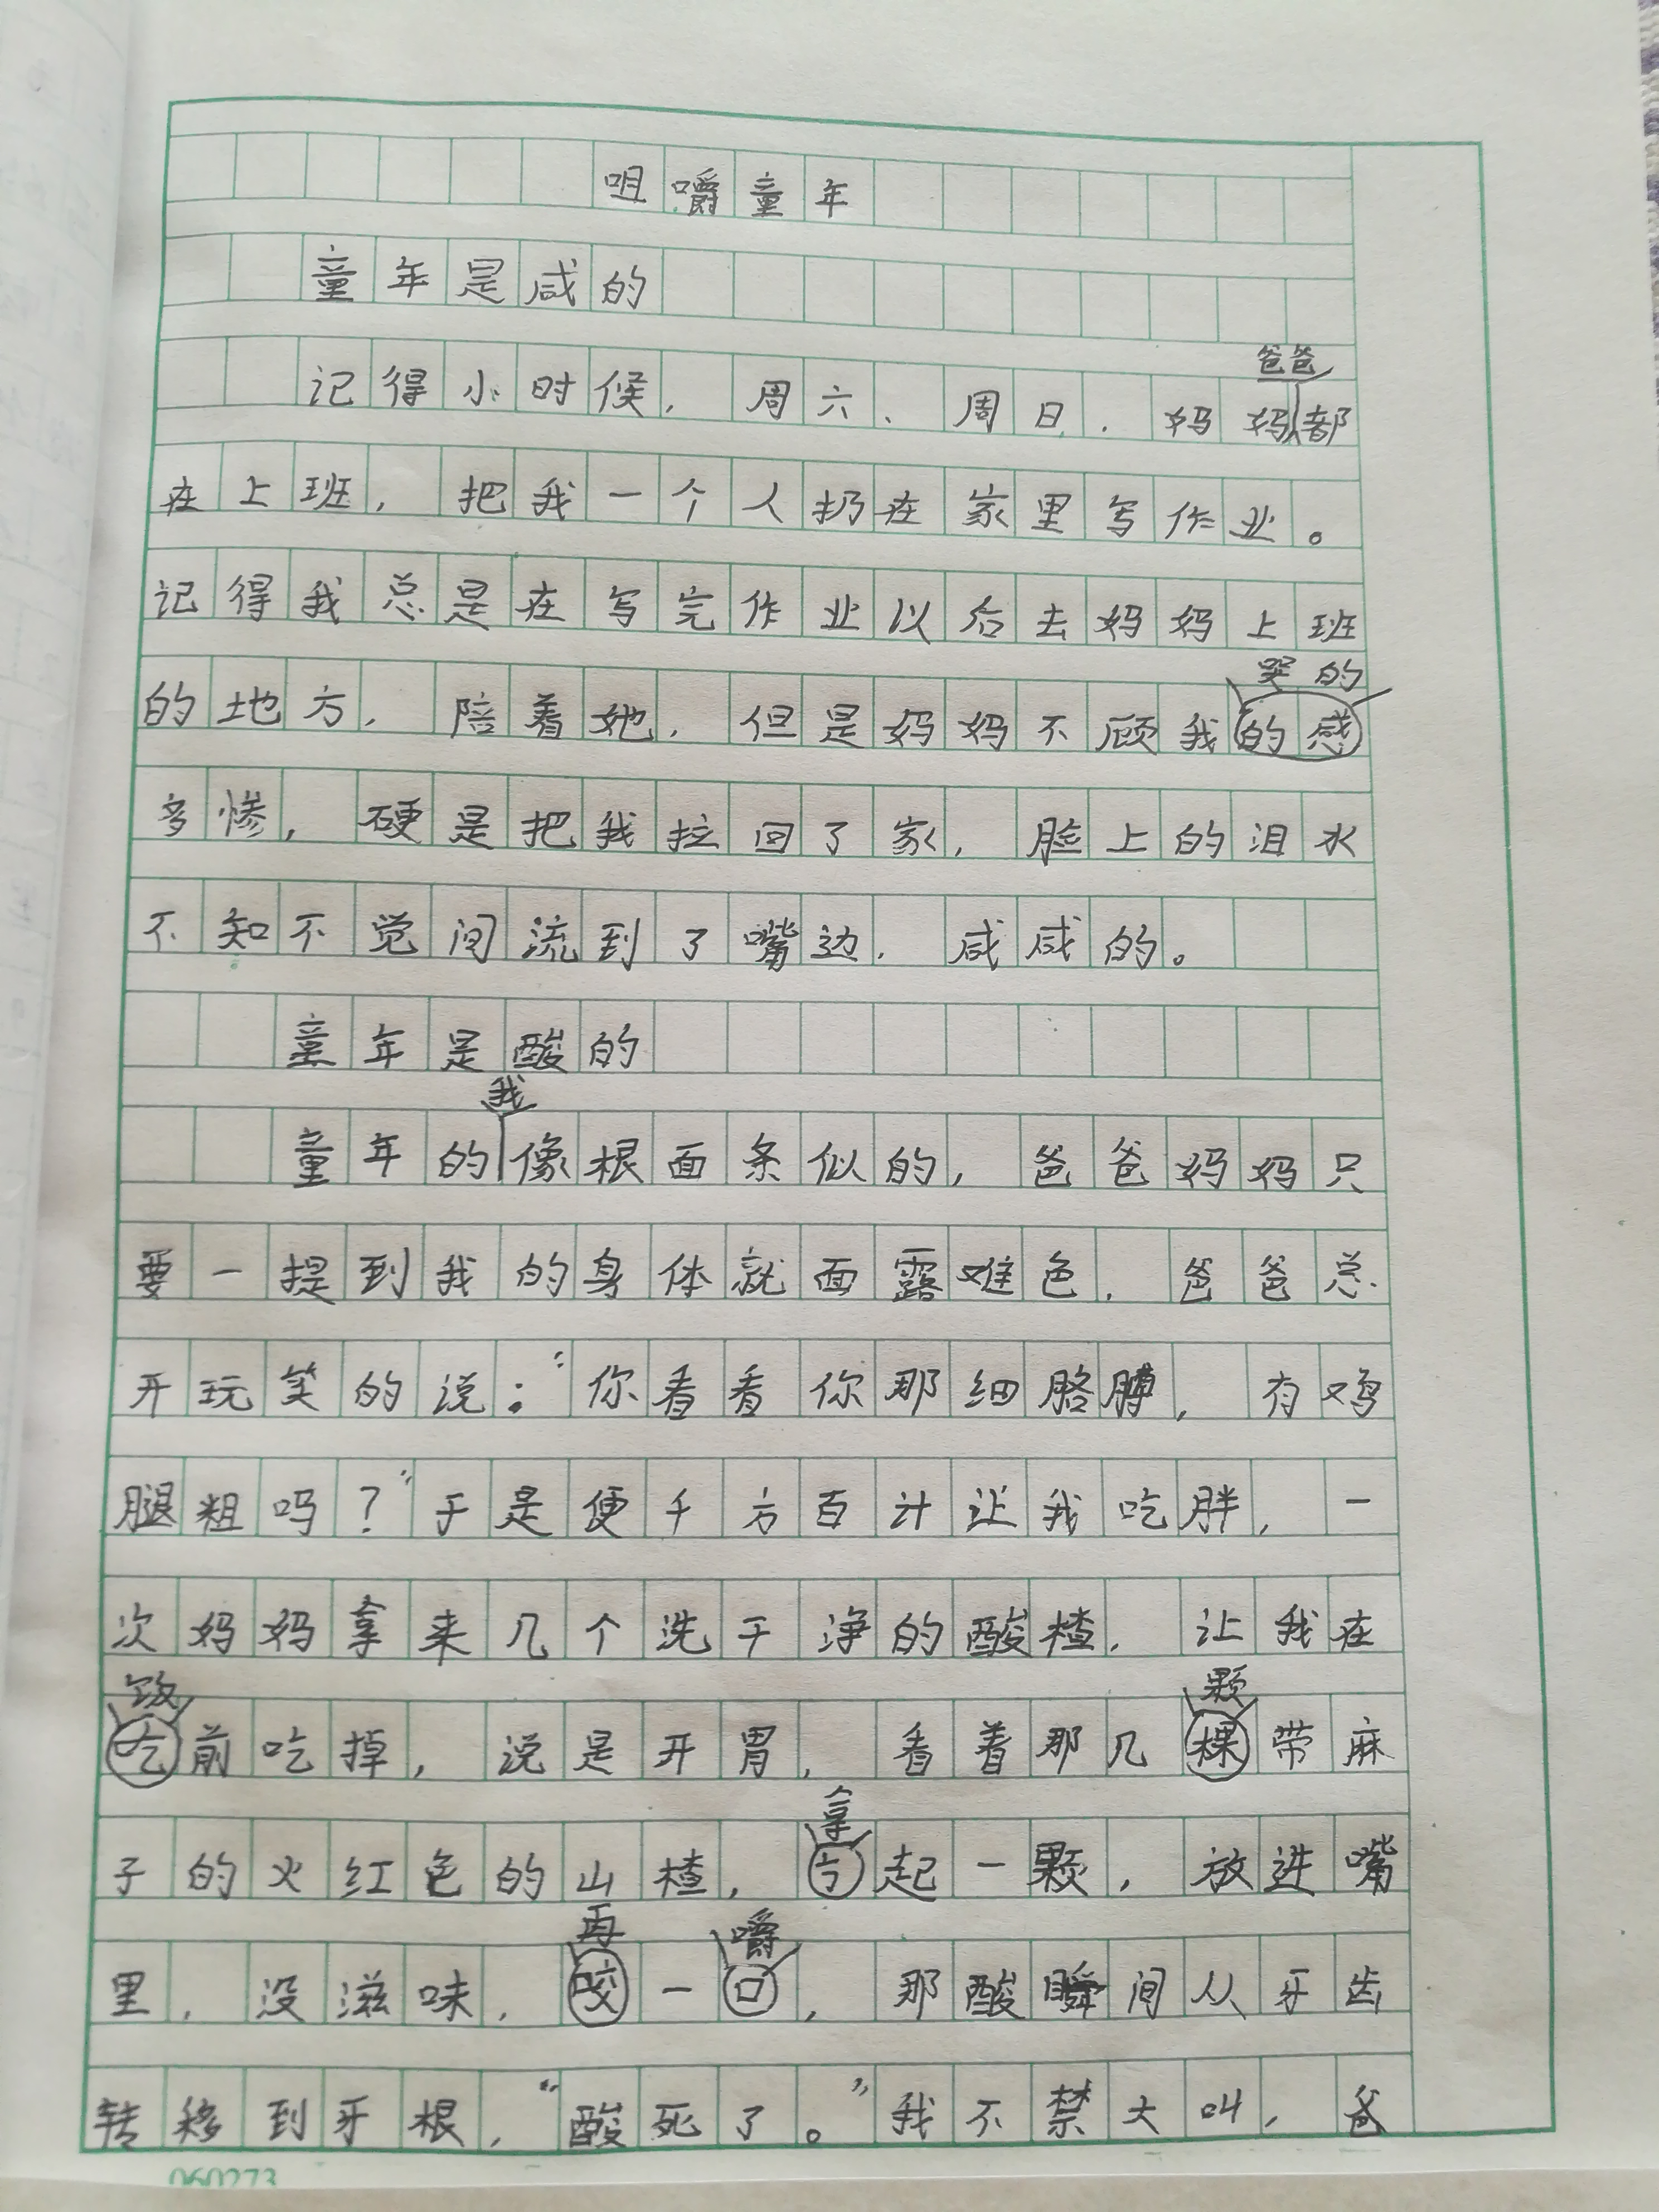 咀嚼童年
童年是咸的
爸爸
记得小时候，周六、周日，妈妈都
在上班，把我一个人扔在家里写作业。
记得我总是在写完作业以后去妈妈上班
哭的
的地方，陪着她，但是妈妈不顾我的感
多惨，硬是把我拉回了家，脸上的泪水
不知不觉间流到了嘴边，咸咸的。
童年是酸的
我
童年的像根面条似的，爸爸妈妈只
要一提到我的身体就面露难色，爸爸总
开玩笑的说：“你看看你那细胳膊，有鸡
腿粗吗？”于是便千方百计让我吃胖，一
次妈妈拿来几个洗干净的酸楂，让我在
饭 颗
吃前吃掉，说是开胃，看着那几棵带麻
拿
子的火红色的山楂，起一颗，放进嘴
再 嚼
里，没滋味，咬一口，那酸瞬间从牙齿
转移到牙根，“酸死了。”我不禁大叫，爸
060273